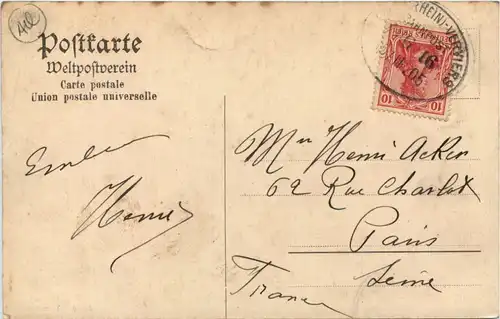 Postkarte
Weltpostverein
Carte postale
Union postale universelle
(RHEIN)-VERVIERS
BAHNPOST
16
05
10
10
Henri
Mr Henri Acker
62 Rue Charlot
Paris
Seine
France